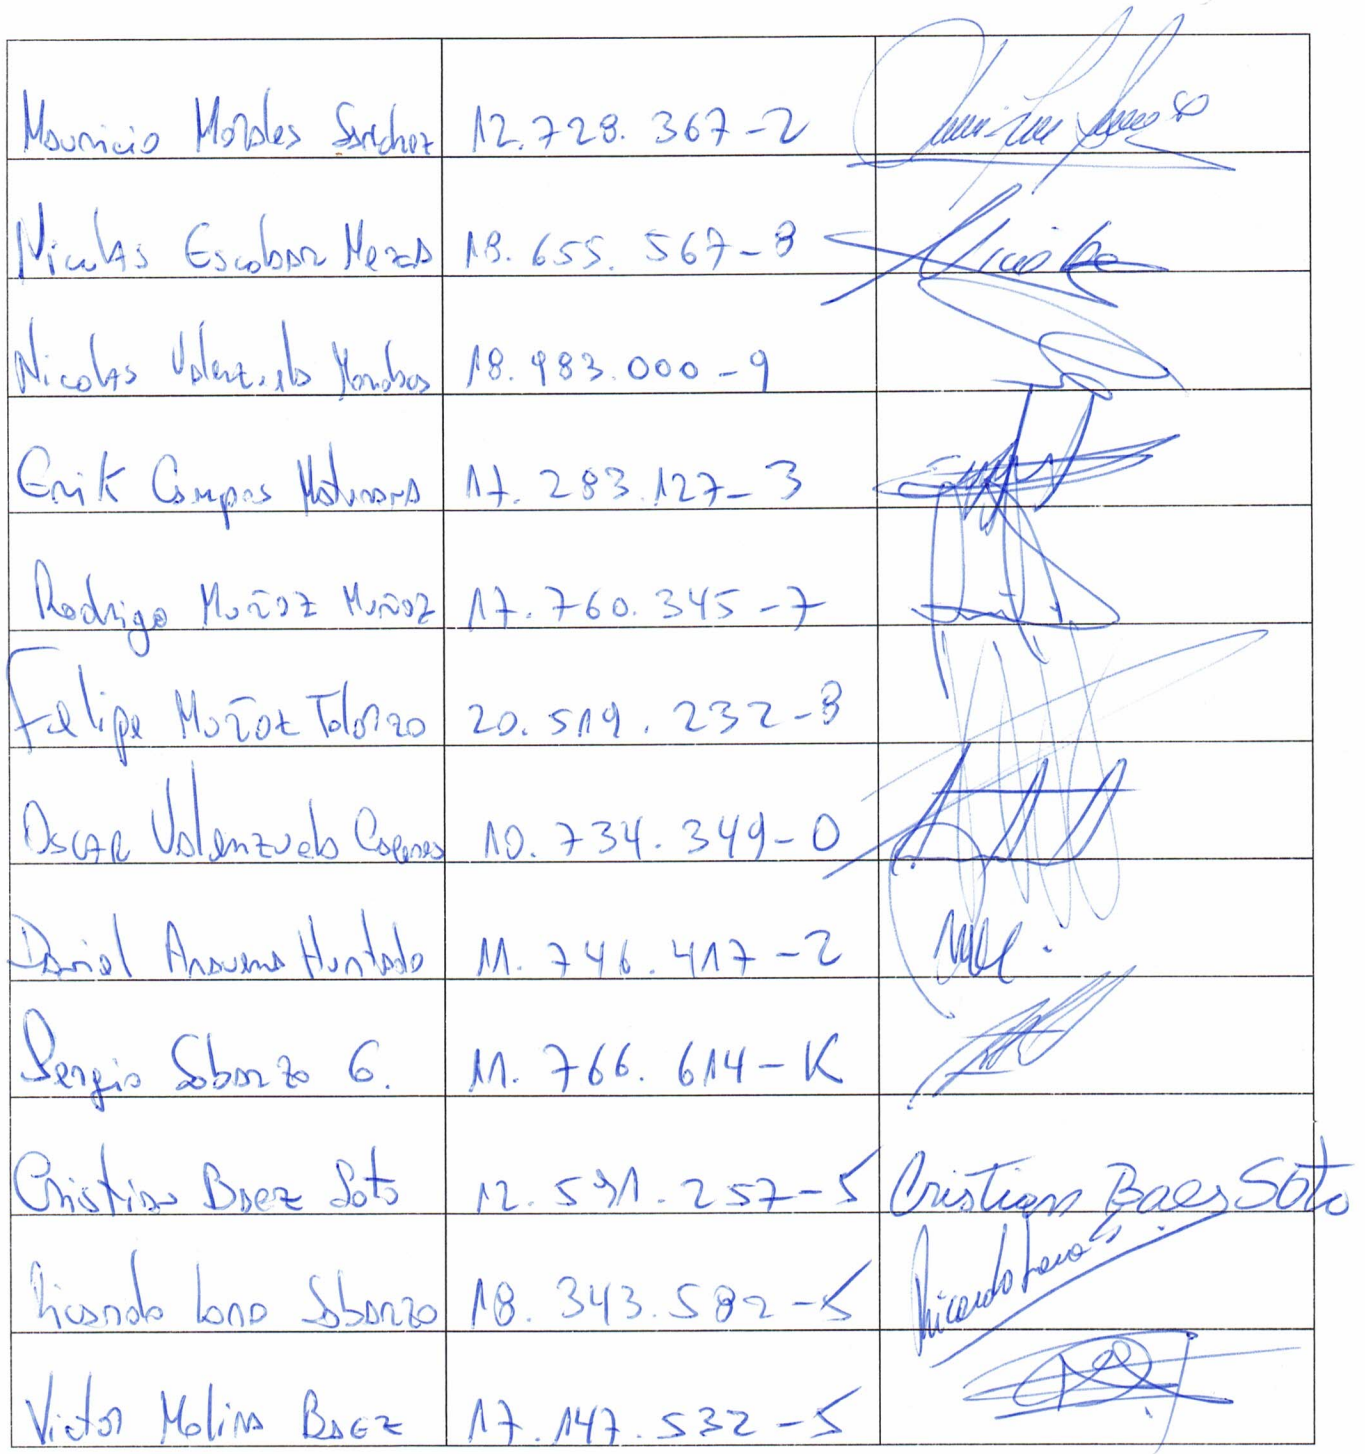 Mauricio Morales Sanchez 12.728.367-2
Nicolas Escobar Meza 18.655.567-8
Nicolas Valenzuela 18.983.000-9
Erik Campos Maturana 17.283.127-3
Rodrigo Muñoz Muñoz 17.760.345-7
Felipe Muñoz 20.519.232-8
Oscar Valenzuela 10.734.349-0
Daniel Aravena Hurtado 11.746.417-2
Sergio Sobarzo G. 11.766.614-K
Cristian Baez Soto 12.591.257-5 Cristian Baes Soto
Ricardo Lara Sobarzo 18.343.582-5 Ricardo Lara S
Victor Molina Baez 17.147.532-5